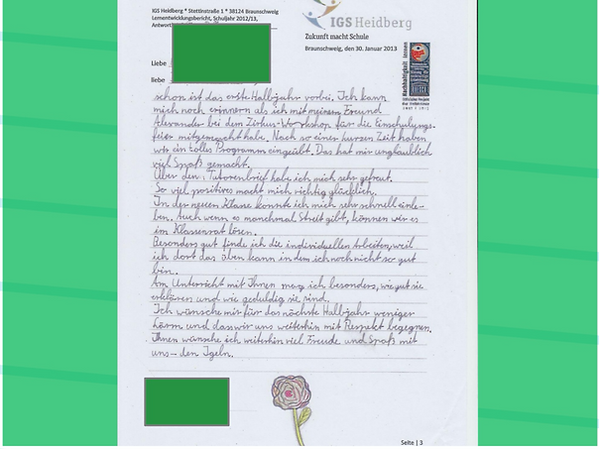 IGS Heidberg * Stettinstraße 1 * 38124 Braunschweig
Lernentwicklungsbericht, Schuljahr 2012/13,
IGS Heidberg
Zukunft macht Schule
Braunschweig, den 30. Januar 2013
Nachhaltigkeit lernen
Liebe
liebe
schon ist das erste Halbjahr vorbei. Ich kann
mich noch erinnern als ich mit meinem Freund
Alexander bei dem Zirkus-Workshop für die Einschulungs-
feier mitgemacht habe. Nach so einer kurzen Zeit haben
wir ein tolles Programm eingeübt. Das hat mir unglaublich
viel Spaß gemacht.
Über den Tutorenbrief habe ich mich sehr gefreut.
So viel positives macht mich richtig glücklich.
In der neuen Klasse konnte ich mich sehr schnell einle-
ben. Auch wenn es manchmal Streit gibt, können wir es
im Klassenrat lösen.
Besonders gut finde ich die individuellen Arbeiten, weil
ich dort das üben kann in dem ich noch nicht so gut
bin.
Am Unterricht mit Ihnen mag ich besonders, wie gut sie
erklären und wie geduldig sie sind.
Ich wünsche mir für das nächste Halbjahr weniger
Lärm und dass wir uns weiterhin mit Respekt begegnen.
Ihnen wünsche ich weiterhin viel Freude und Spaß mit
uns – den Igeln.
Seite | 3